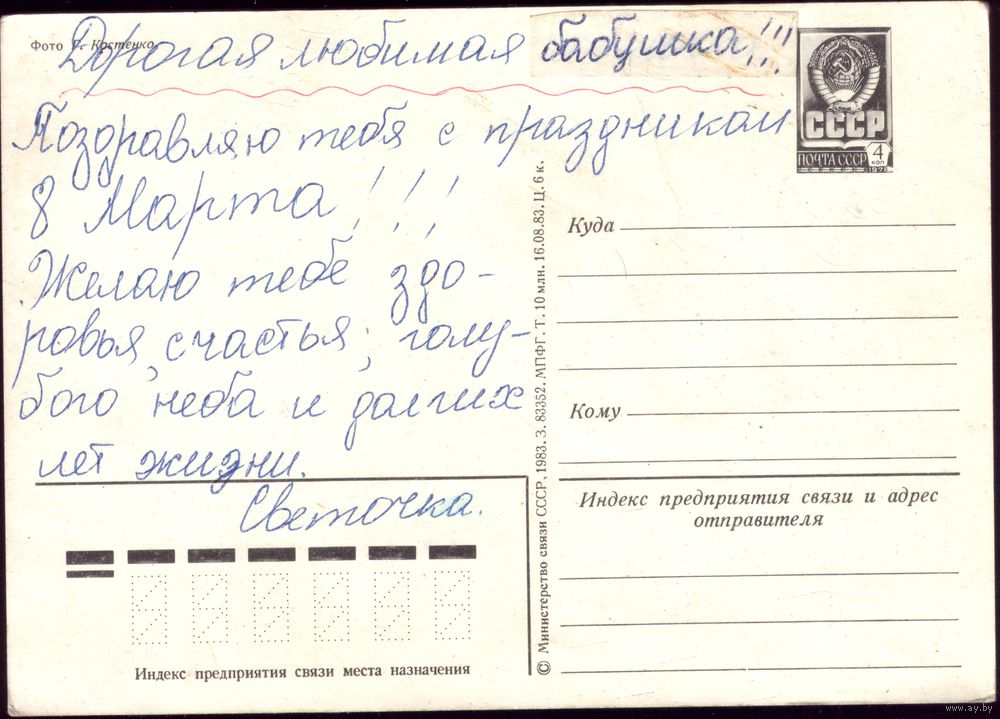 Фото Г. Костенко
Дорогая любимая бабушка!!!
Поздравляю тебя с праздником
8 Марта!!!
Желаю тебе здо-
ровья, счастья, голу-
бого неба и долгих
лет жизни.
Светочка.
Индекс предприятия связи места назначения
© Министерство связи СССР, 1983. З. 83352. МПФГ. Т. 10 млн. 16.08.83. Ц. 6 к.
СССР
ПОЧТА СССР
4
КОП
Куда
Кому
Индекс предприятия связи и адрес
отправителя
www.ay.by